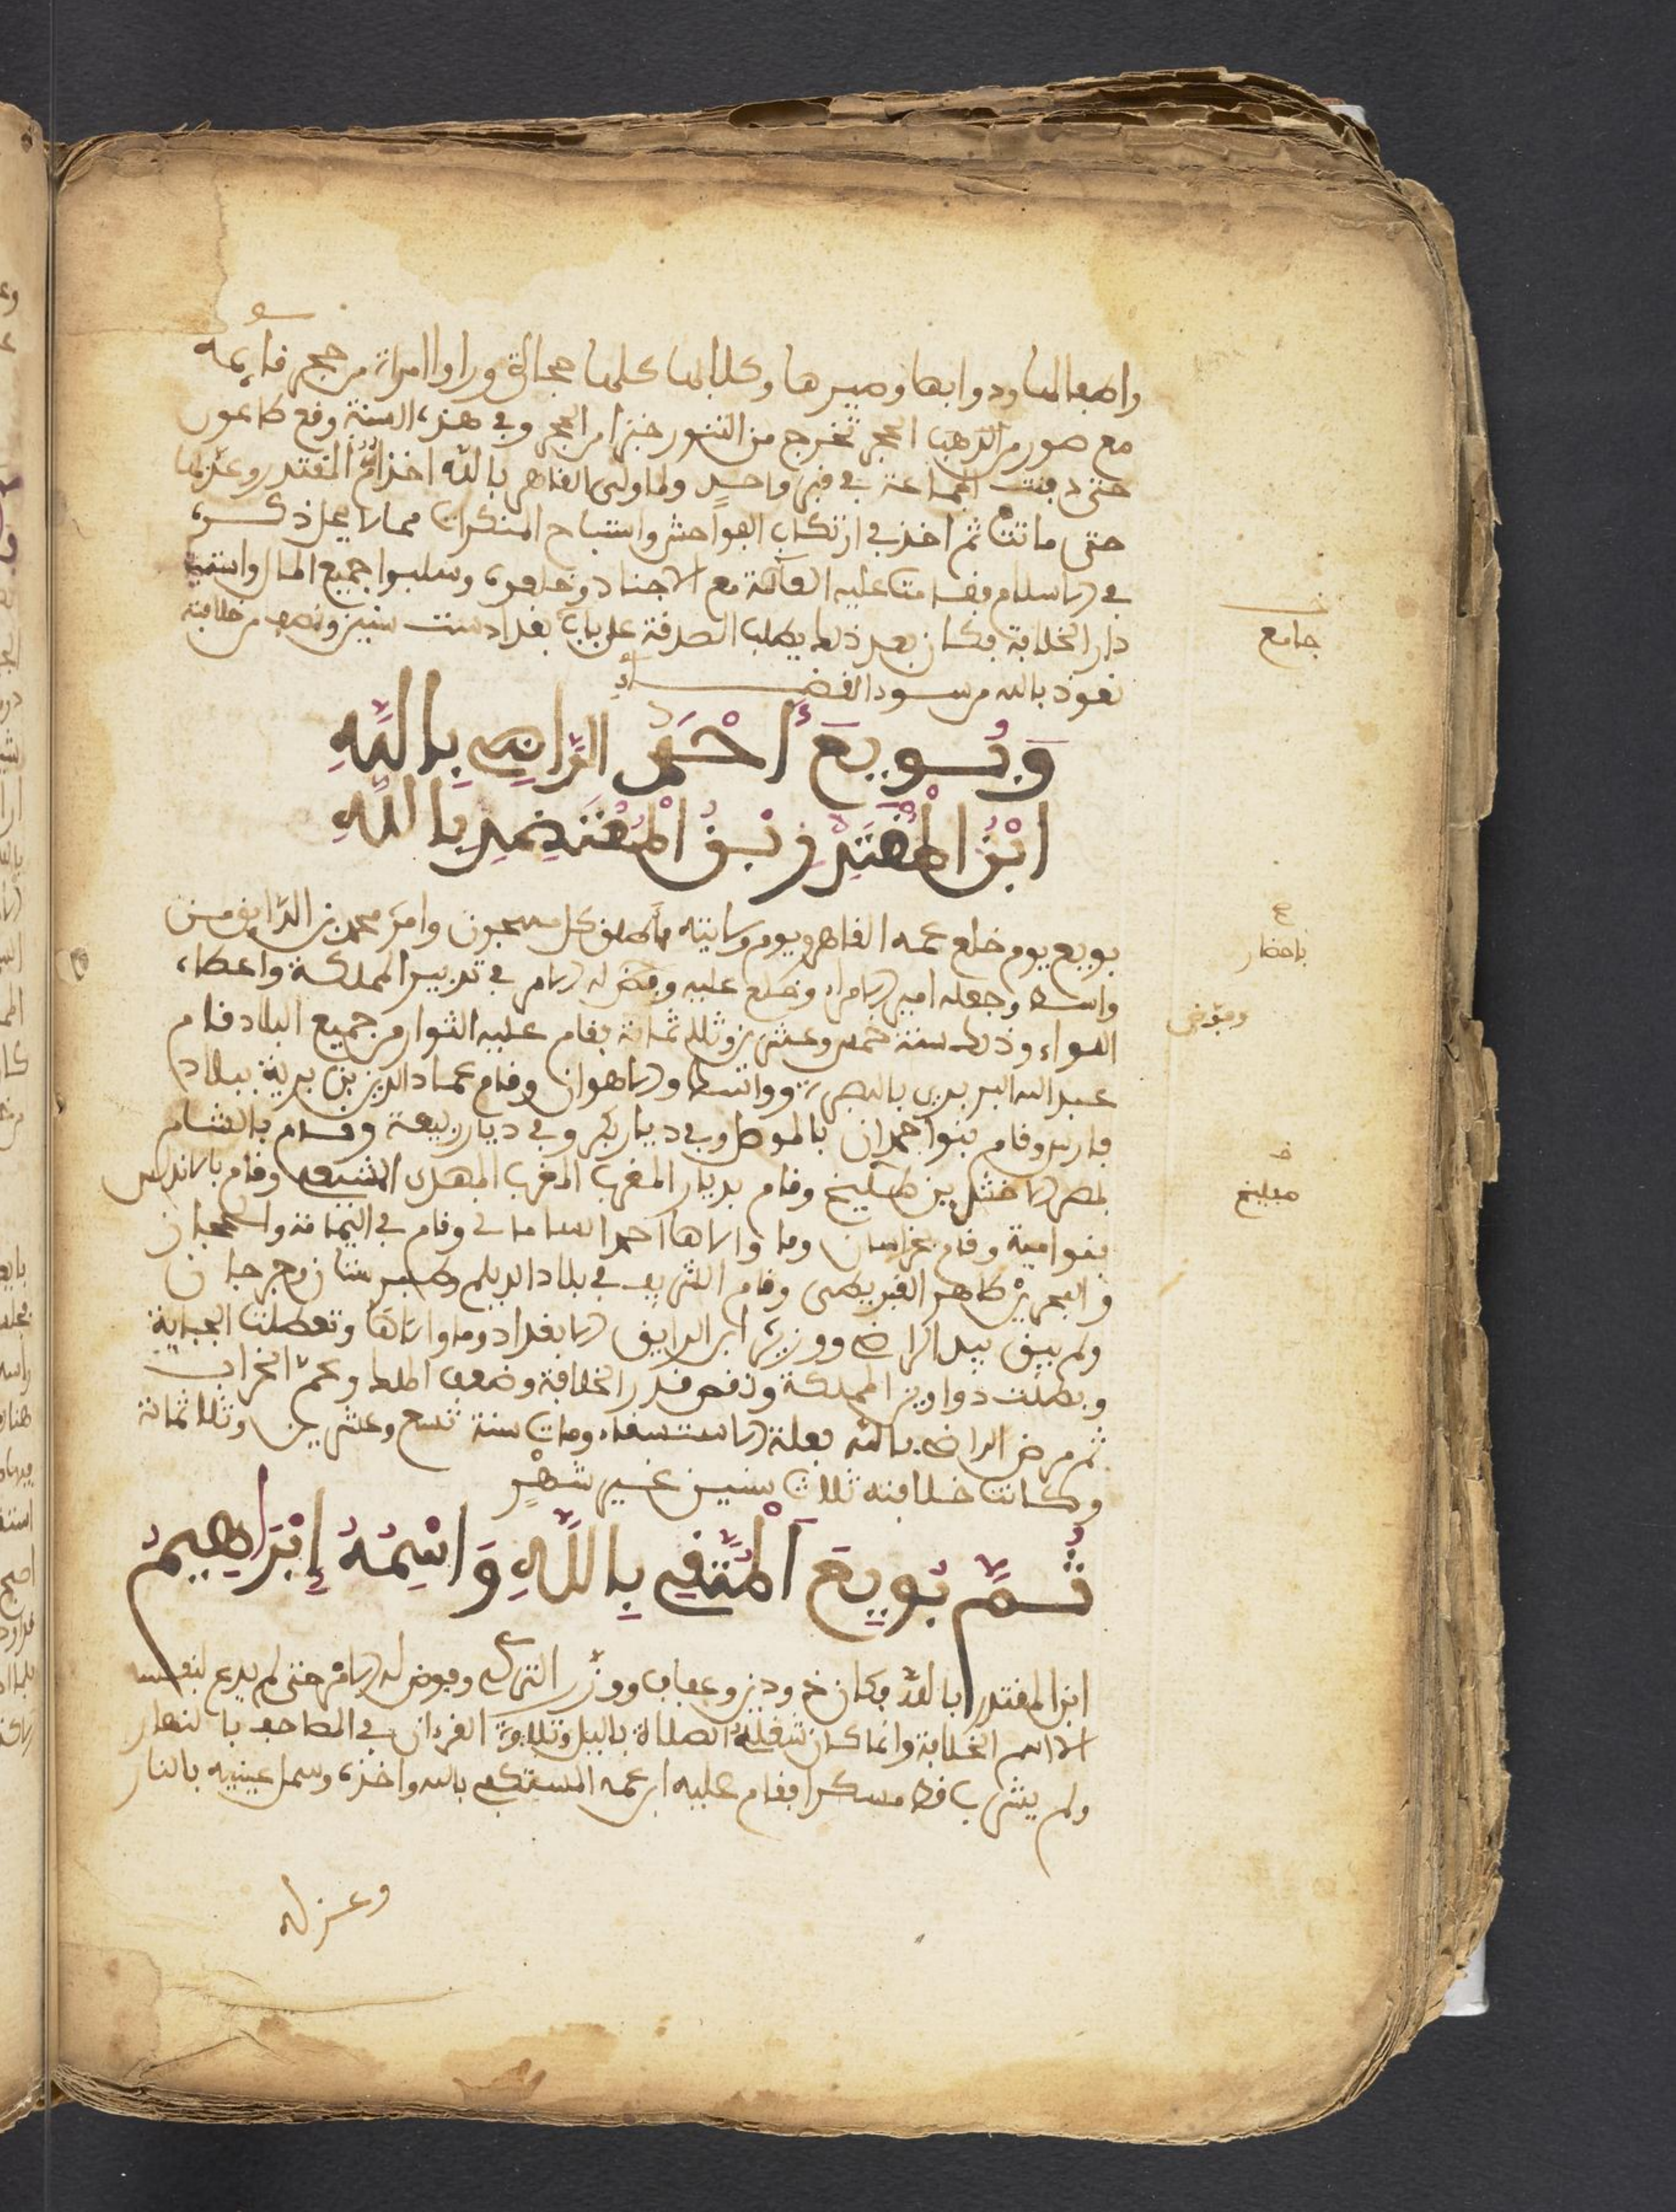 واطفالها ودوابها وحميرها وكلابها كلها حجارة وراوا امراة من حجر قايمة
مع صور من الذهب الحجر تخرج من التنور خبزا من الحجر وفي هذه السنة وقع طاعون
حتى دفنت الجماعة في قبر واحد ولما ولى القاهر بالله اخذ ام المقتدر وعذبها
حتى ماتت ثم اخذ في ارتكاب الفواحش واستباح المنكرات مما لا يحل ذكره
في الاسلام فقامت عليه العامة مع الاجناد وخلعوه وسلبوا جميع المال وانتهب
دار الخلافة فكان بعد ذلك يطلب الصدقة على باب بغداد سنتين ونصف من خلافته
نعوذ بالله من سوء القضاء
وَبُويِعَ أَحْمَد الرَّاضِي بِاللَّهِ
ابْنُ الْمُقْتَدِرِ بْنُ الْمُعْتَضِدِ بِاللَّهِ
بويع يوم خلع عمه القاهر ويوم ولايته اطلق كل مسجون وامر محمد بن الرايق من
واسط وجعله امير الامراء وخلع عليه وفوض له الامر في تدبير المملكة واعطاه
اللواء وذلك سنة خمس وعشرين وثلاثمائة فقام عليه الثوار من جميع البلاد قام
عبد الله البريدي بالبصرة وواسط والاهواز وقام عماد الدين بن بوية ببلاد
فارس وقام بنوا حمدان بالموصل وفي ديار بكر وفي ديار ربيعة وقام بالشام
بمصر الاخشيد بن طغج وقام بديار المغرب المغرب المهدي الشيعي وقام بالاندلس
بنوامية وقام بخراسان وما والاها احمد الساماني وقام في اليمامة والحجاز
والبحرين طاهر القرمطي وقام الشريف في بلاد الديلم وطبرستان وجرجان
ولم يبق بيد الراضي ووزيره ابن الرايق الا بغداد وما والاها وتعطلت الجباية
وبطلت دواوين المملكة ونقص قدر الخلافة وضعف الملك وعم الخراب
ثم مرض الراضي بالله بعلة الاستسقاء ومات سنة تسع وعشرين وثلاثمائة
وكانت خلافته ثلاث سنين غير شهر
ثُمَّ بُويِعَ الْمُتَّقِي بِاللَّهِ وَاسْمُهُ إِبْرَاهِيمُ
ابن المقتدر بالله فكان ذو دين وعفاف ووزر التركي وفوض له الامر حتى لم يدع لنفسه
الا اسم الخلافة وانما كان شغله الصلاة بالليل وتلاوة القرءان في المصاحف بالنهار
ولم يشرب قط مسكرا فقام عليه ابن عمه المستكفي بالله واخذه وسمل عينيه بالنار
وعزله
جامع
باحضار
وفوض